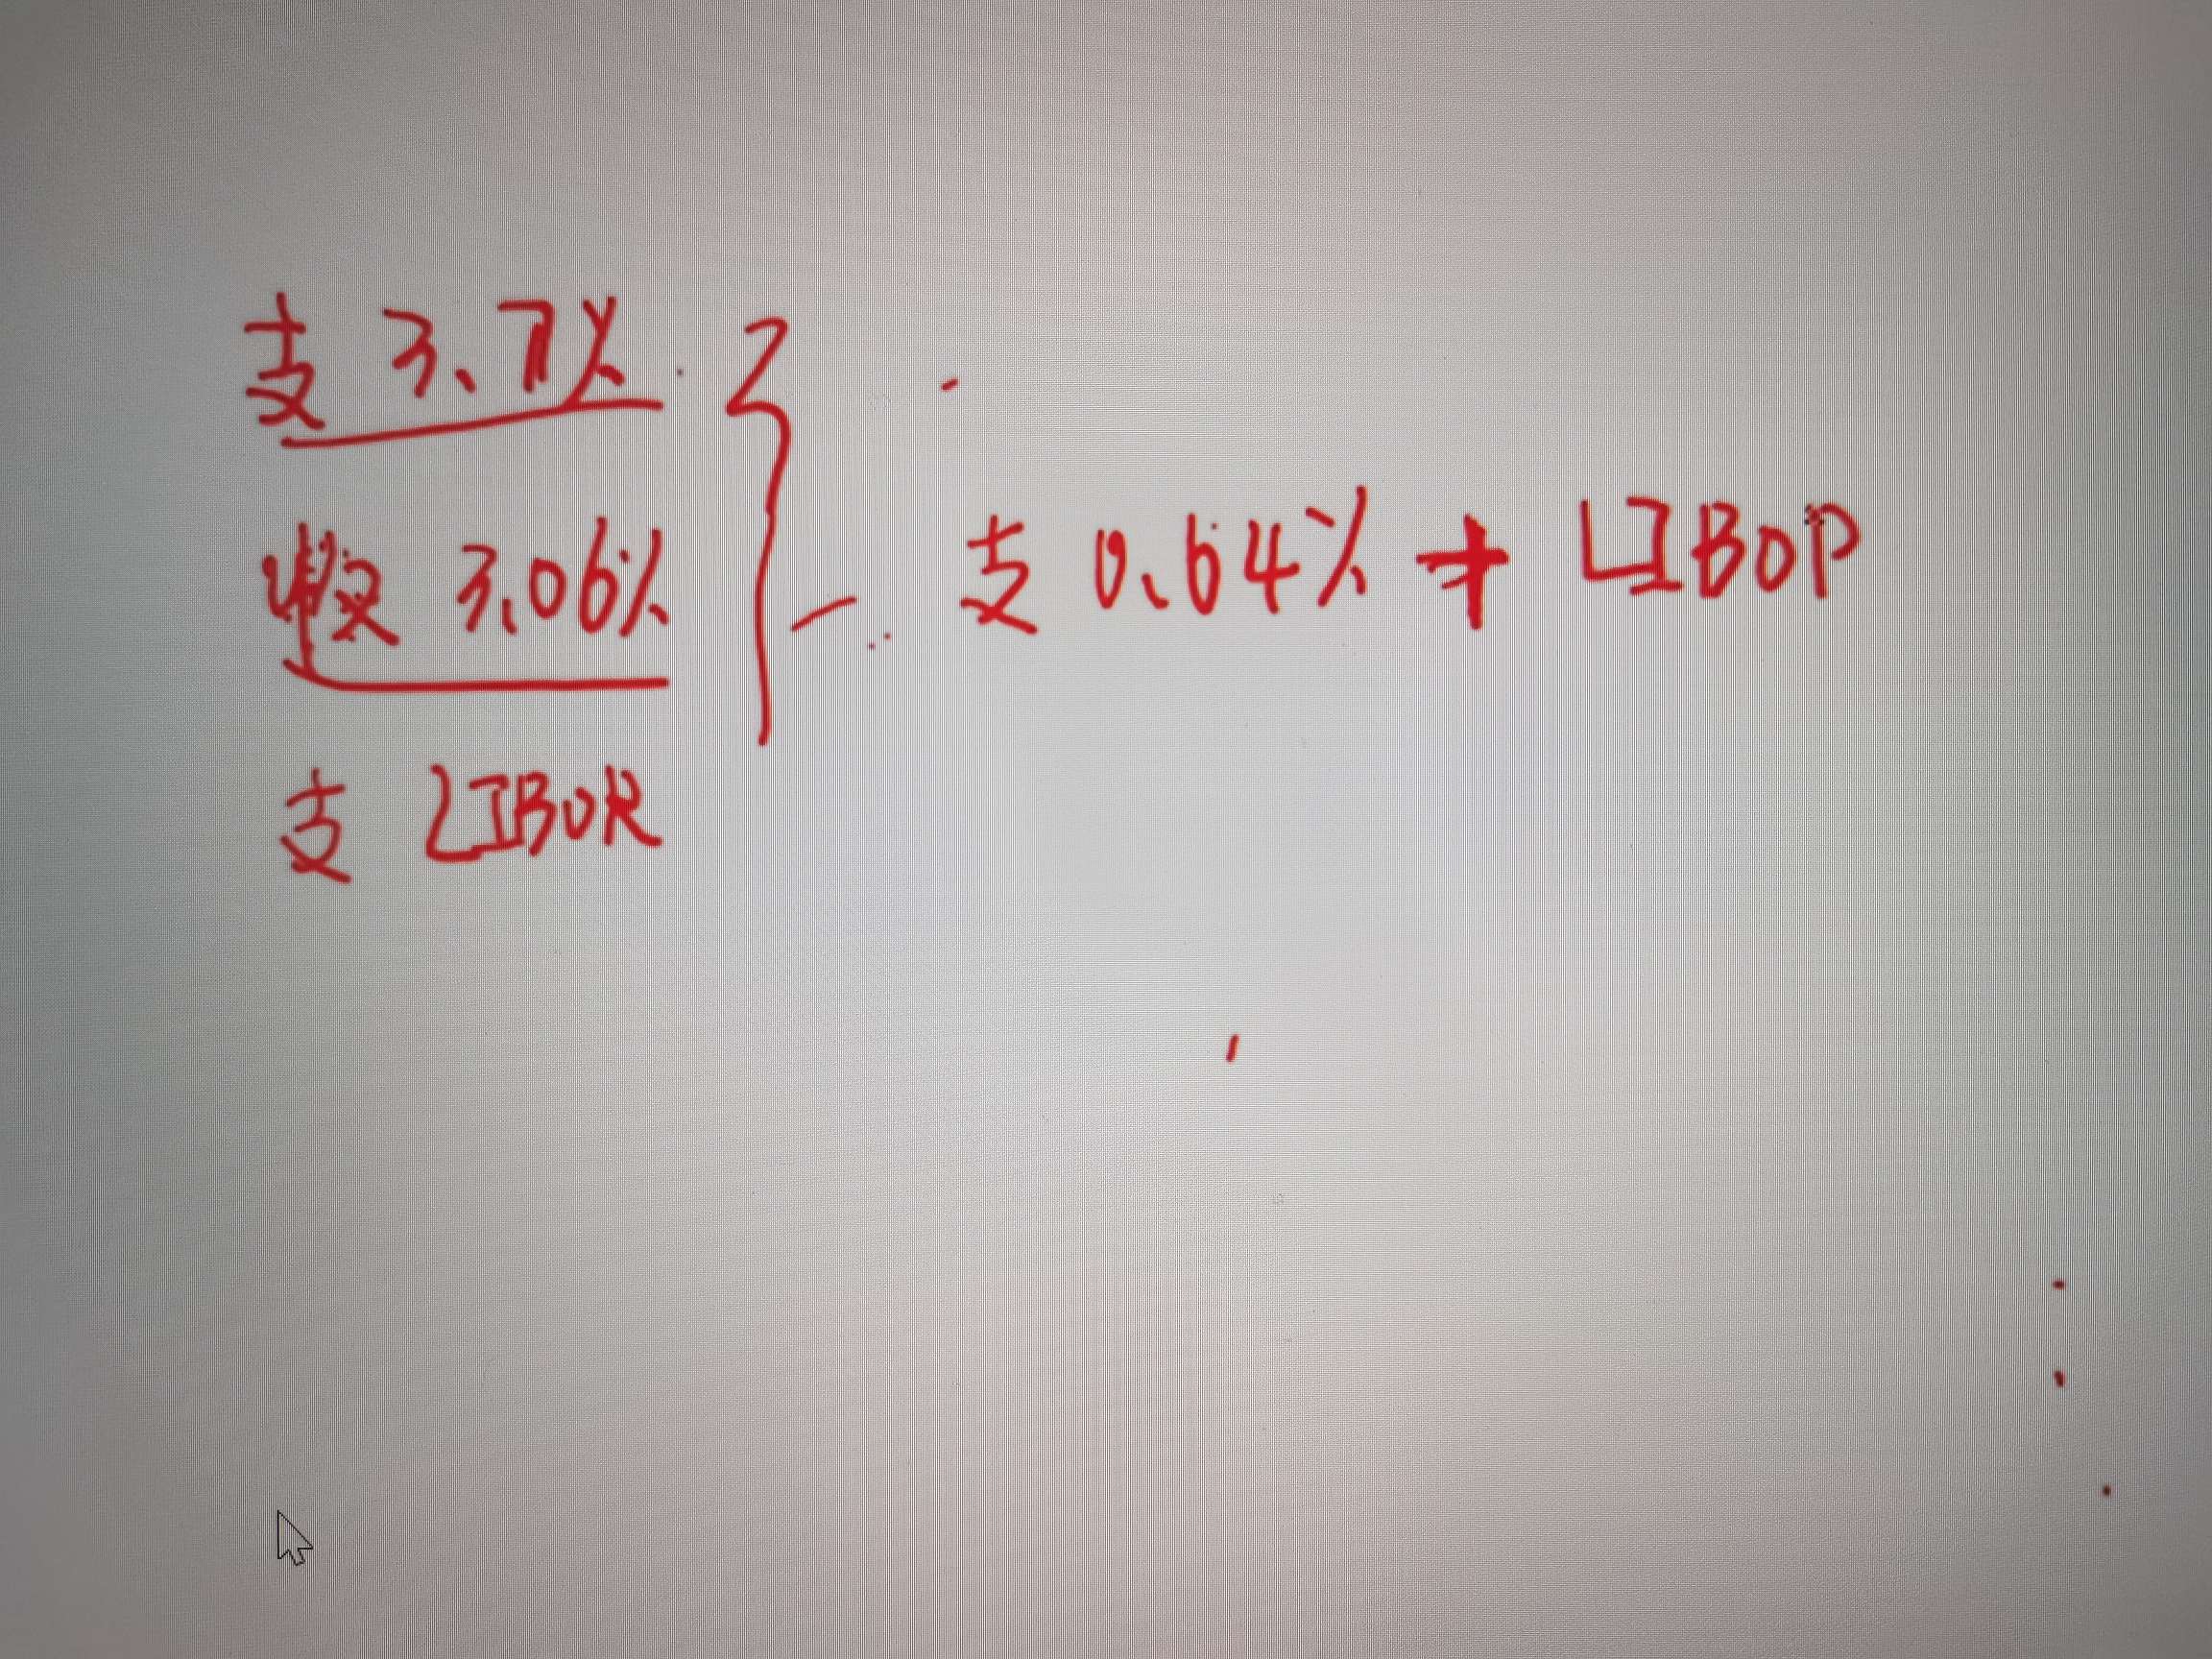 支 3.7%
收 3.06%
支 0.64% + LIBOP
支 LIBOR